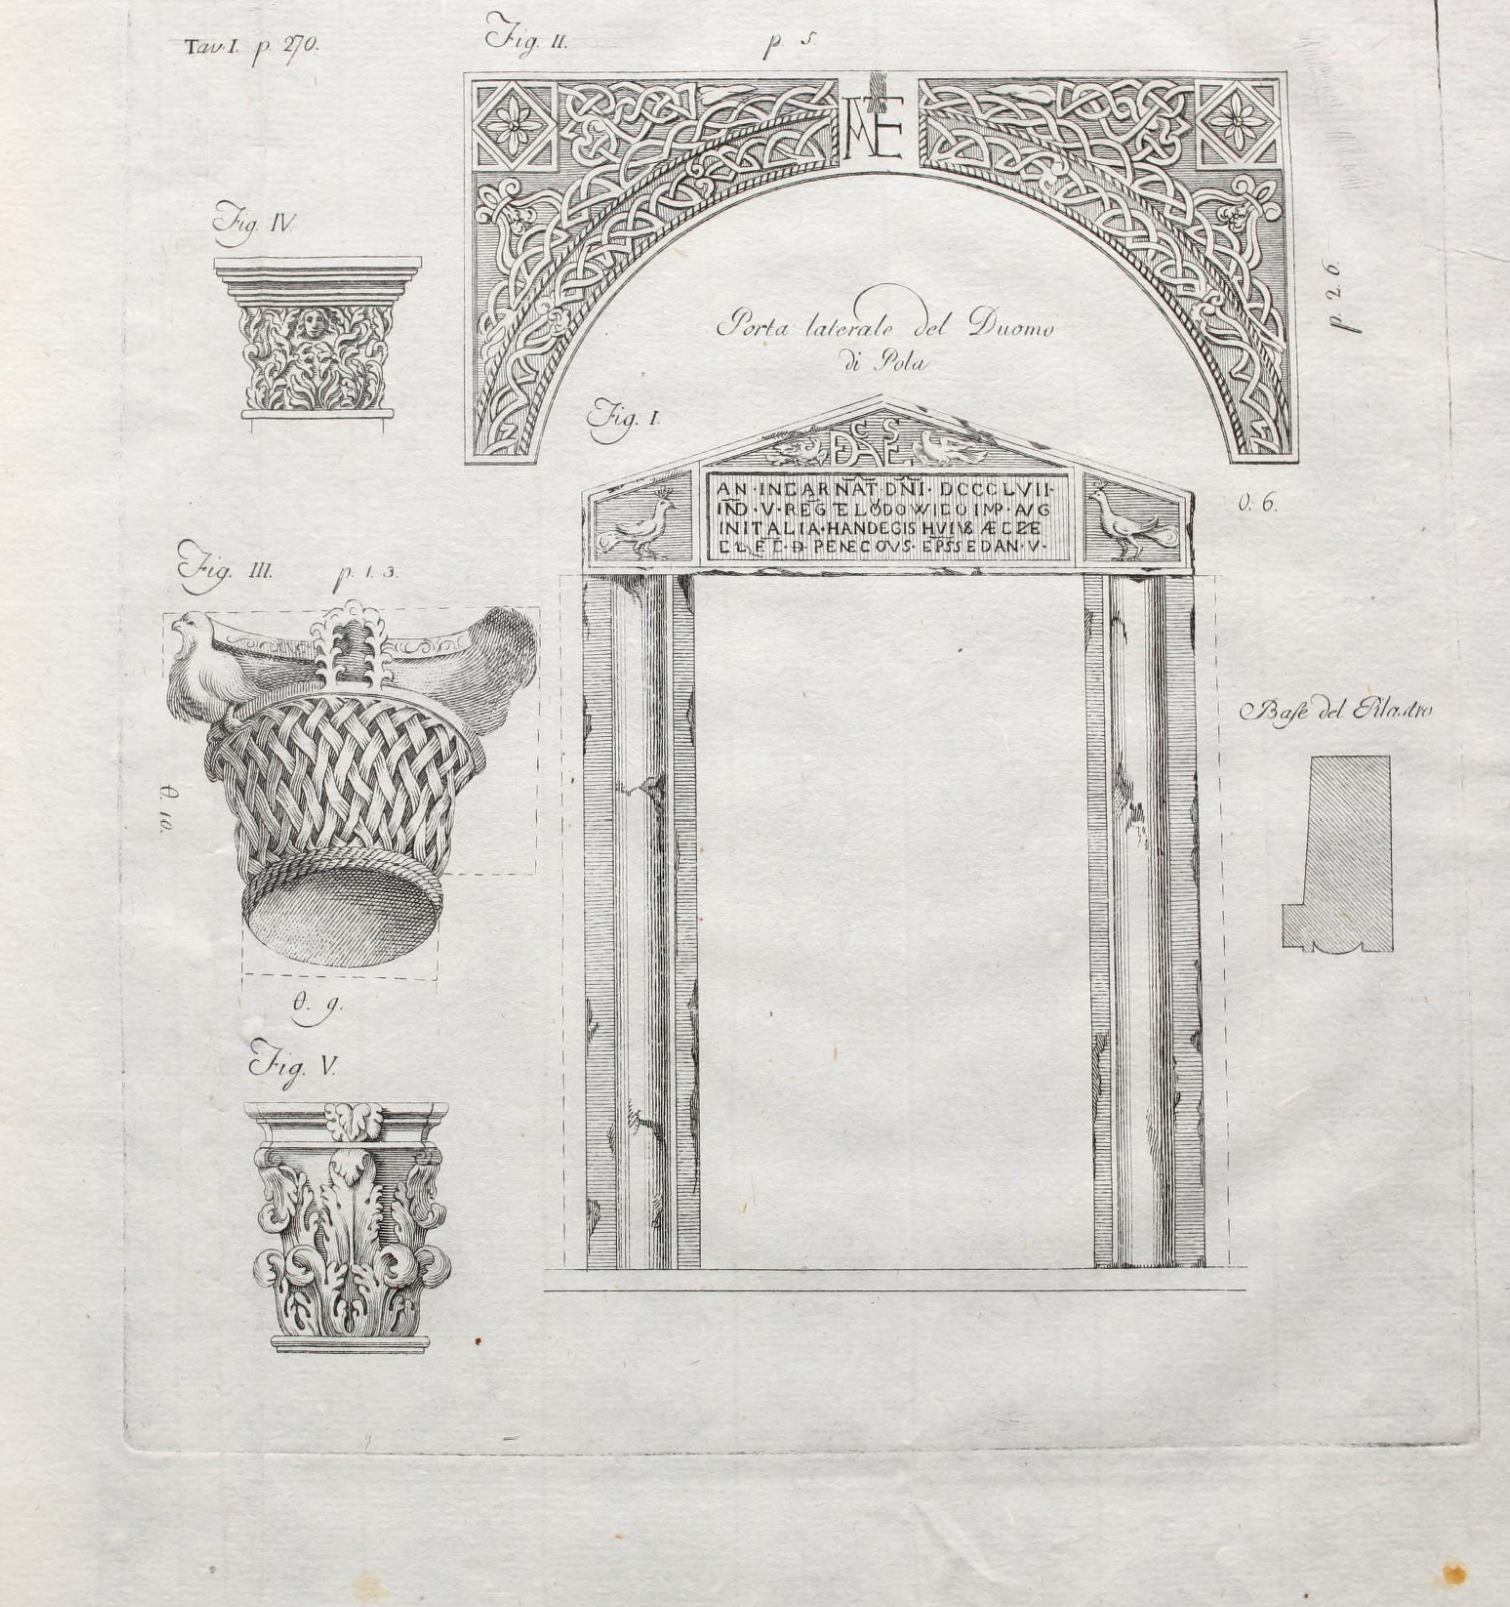 Tav. I. p. 270.
Fig. II.
p. 5
Fig. IV.
p. 2. 6.
Porta laterale del Duomo
di Pola
Fig. I.
AN · INCARNAT · DNI · DCCCLVII ·
IND · V · REGE LODOWICO IMP · AVG
IN ITALIA · HANDEGIS HVIVS ÆCCLE
ELEC · D PENECOVS · EPS SED AN · V ·
0. 6.
Fig. III.
p. 1. 3.
Base del Pilastro
0. 10.
0. 9.
Fig. V.